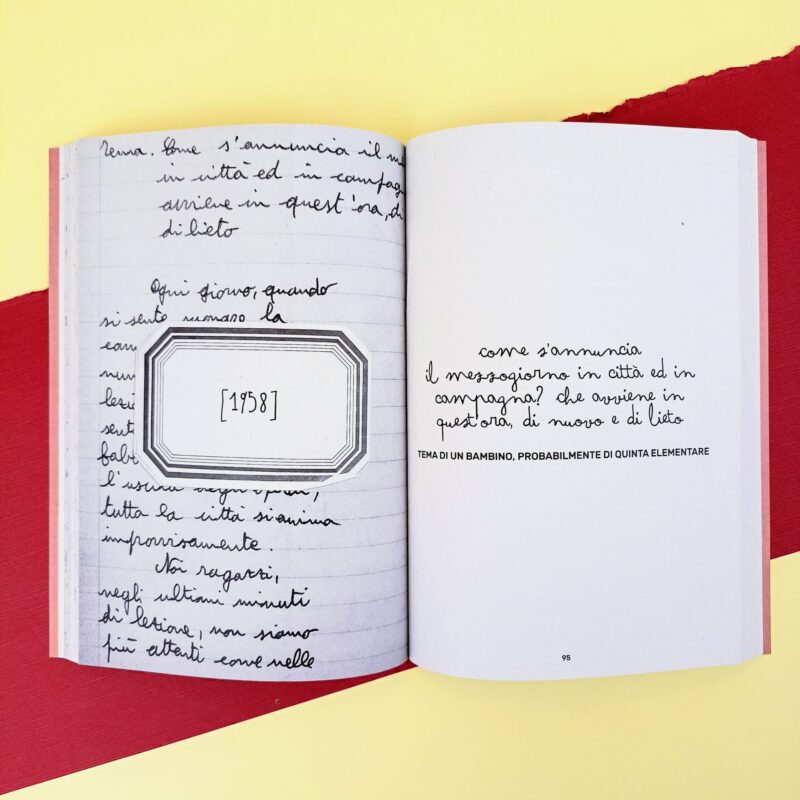 Tema. Come s'annuncia il me
in città ed in campagn
avviene in quest'ora, di
di lieto
Ogni giorno, quando
si sente suonare la
cam
nun
lezi
sent
fabb
l'uscita degli operai,
tutta la città si anima
improvvisamente.
Noi ragazzi,
negli ultimi minuti
di lezione, non siamo
più attenti come nelle
[1958]
come s'annuncia
il mezzogiorno in città ed in
campagna? che avviene in
quest'ora, di nuovo e di lieto
TEMA DI UN BAMBINO, PROBABILMENTE DI QUINTA ELEMENTARE
95